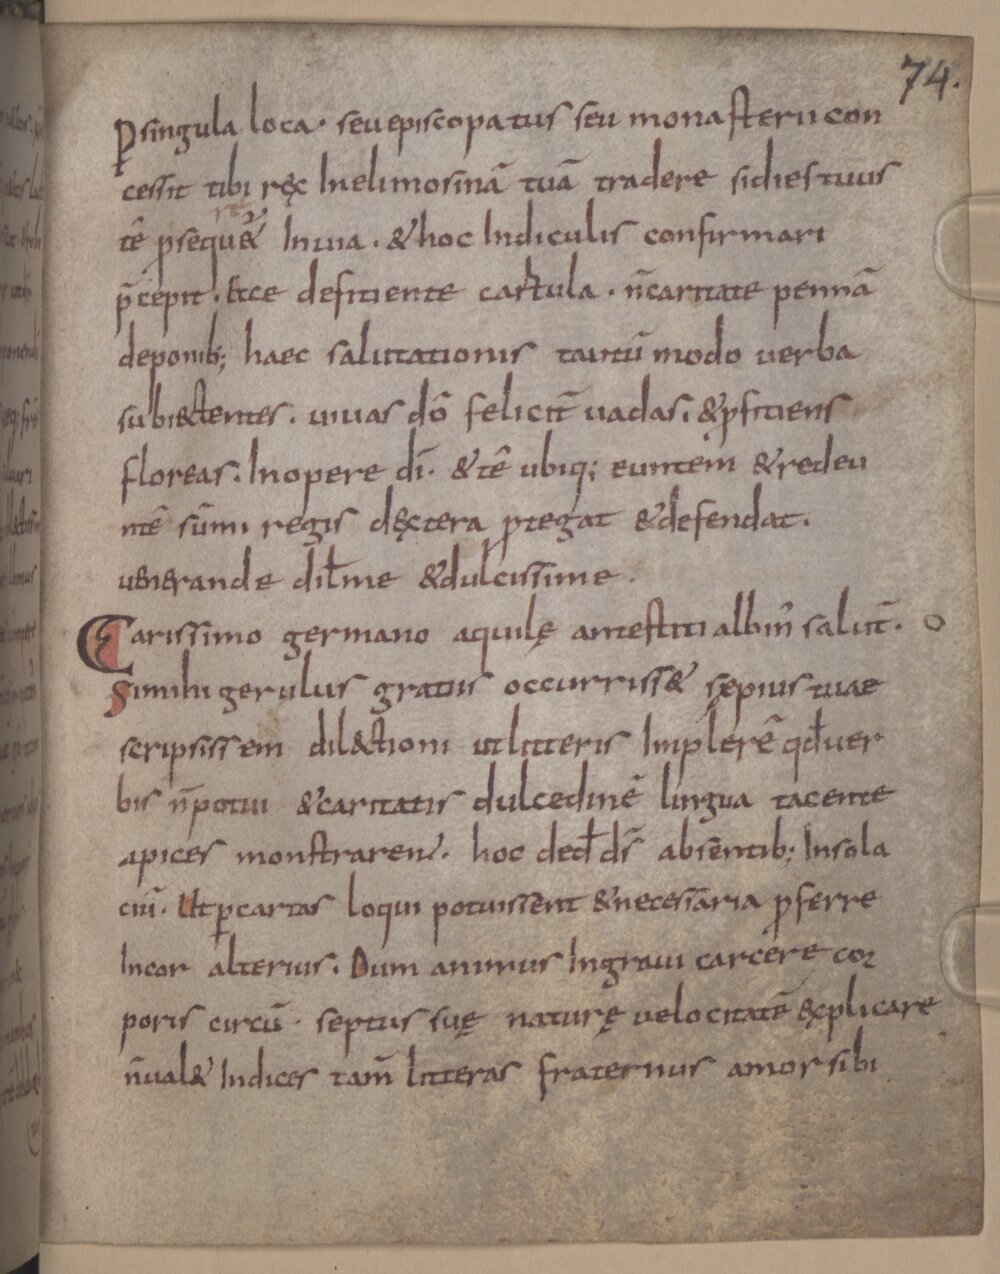 74.
Psingula loca· seu episcopatus seu monasterii con
cessit tibi ręx In elimosinā tuā tradere sidiestuus
tē psequ& In uia· & hoc Indiculis confirmari
p̄cepit· Ecce deficiente cartula· n̄ caritate pennā
deponib; haec salutationis tantū modo uerba
subiectentes· uiuas dō felicit̄ uadas· & pficiens
floreas· In opere dī· & tē ubiq; euntem & redeu
ntē sūmi regis dęxtera ptegat & defendat·
uenerande dił̄me & dulcissime·
Carissimo germano aquilę antestiti albin̄ salut̄·
Si mihi gerulus gratus occurriss& sępius tuae
scripsissem dil&ctioni ut litteris Implerē qd̄ uer
bis n̄ potui & caritatis dulcedinē lingua tacente
apices monstrarent· hoc ded̄ dī absentib; In sola
ciū· Ut p cartas loqui potuissent & necessaria pferre
In cor alterius· Dum animus In graui carcere cor
poris circū· septus suę naturę uelocitatē ęxplicare
n̄ ual& Indices tam̄ litteras fraternus amor sibi